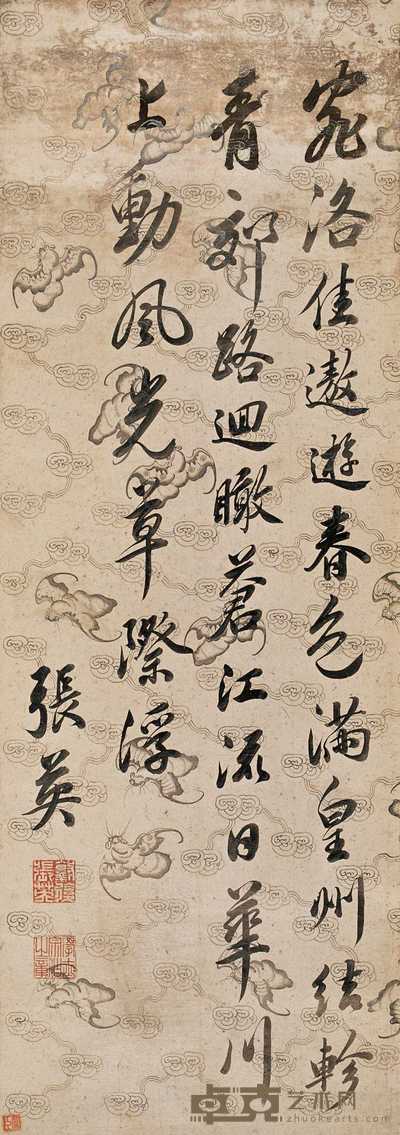 宛洛佳遨遊春色滿皇州結軫
青郊路迴瞰蒼江流日華川
上動風光草際浮
張英
卓克艺术网
www.zhuokearts.com